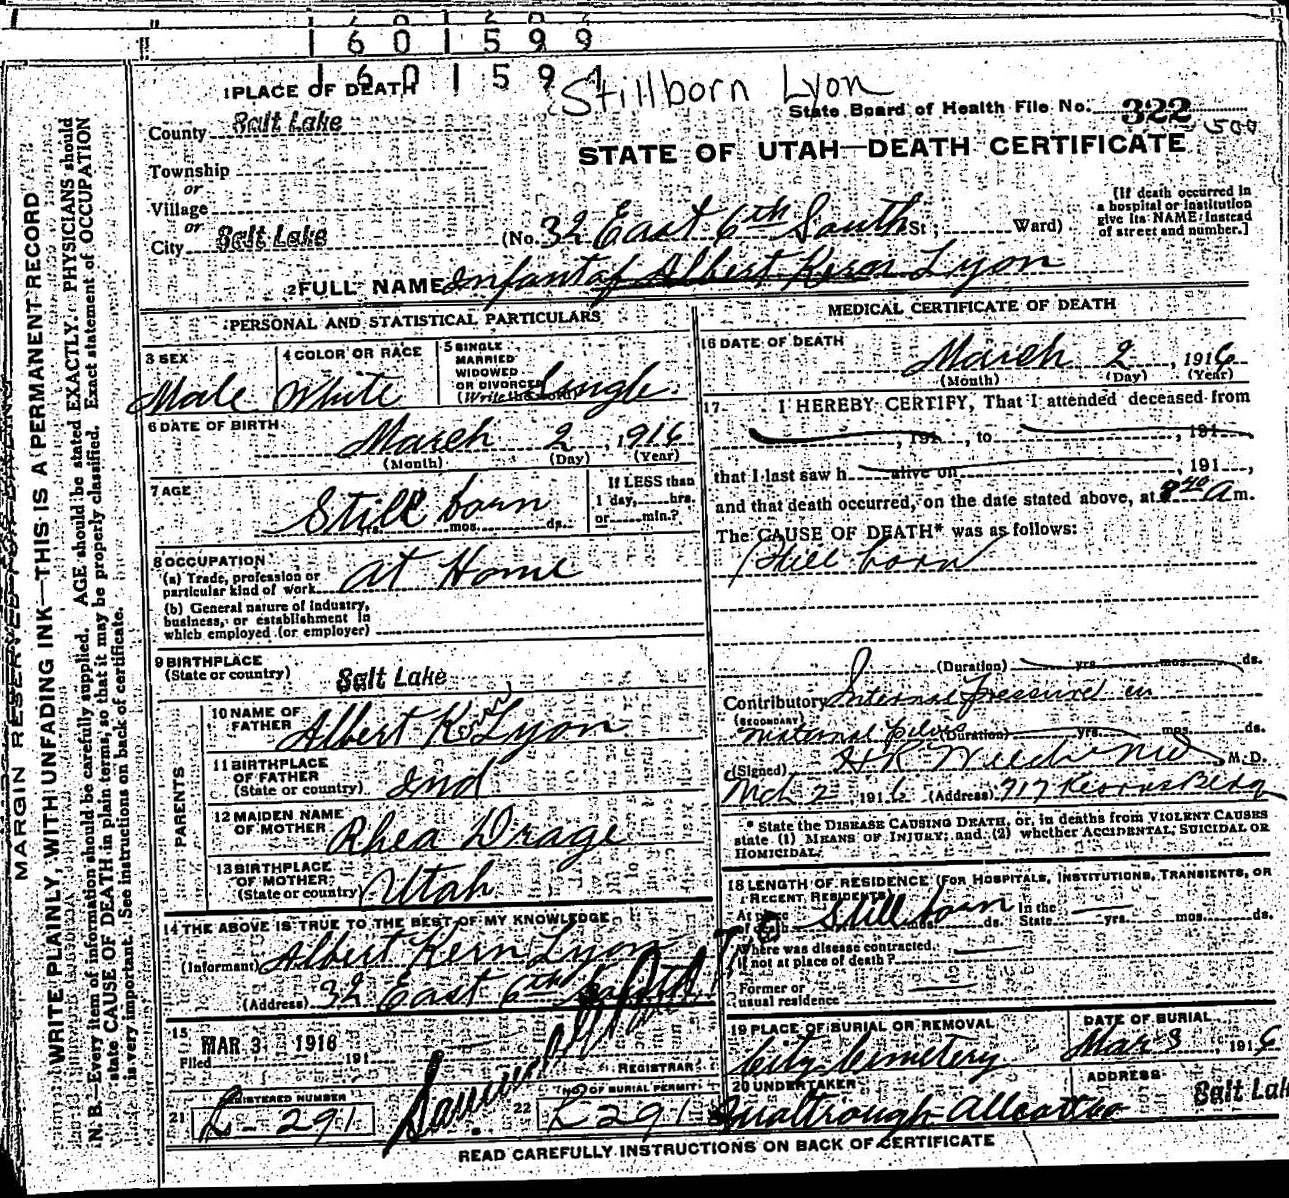 1601599
1601594
Stillborn Lyon
1 PLACE OF DEATH
State Board of Health File No. 322
500
County Salt Lake
STATE OF UTAH—DEATH CERTIFICATE
Township
or
Village
or
City Salt Lake (No. 32 East 6th South St; Ward)
[If death occurred in a hospital or institution give its NAME instead of street and number.]
2 FULL NAME Infant of Albert Kern Lyon
PERSONAL AND STATISTICAL PARTICULARS
3 SEX Male
4 COLOR OR RACE White
5 SINGLE MARRIED WIDOWED OR DIVORCED (Write the word) Single
6 DATE OF BIRTH March 2, 1916
(Month) (Day) (Year)
7 AGE Still born
yrs. mos. ds.
If LESS than 1 day, hrs. or min.?
8 OCCUPATION
(a) Trade, profession or particular kind of work At Home
(b) General nature of industry, business, or establishment in which employed (or employer)
9 BIRTHPLACE (State or country) Salt Lake
PARENTS
10 NAME OF FATHER Albert Kern Lyon
11 BIRTHPLACE OF FATHER (State or country) Ind
12 MAIDEN NAME OF MOTHER Rhea Drage
13 BIRTHPLACE OF MOTHER (State or country) Utah
14 THE ABOVE IS TRUE TO THE BEST OF MY KNOWLEDGE
(Informant) Albert Kern Lyon
(Address) 32 East 6th
15
Filed MAR 3 1916 191
REGISTRAR
21 REGISTERED NUMBER L-291
22 NO OF BURIAL PERMIT L291
MEDICAL CERTIFICATE OF DEATH
16 DATE OF DEATH March 2, 1916
(Month) (Day) (Year)
17 I HEREBY CERTIFY, That I attended deceased from
, 191 , to , 191
that I last saw h alive on , 191 ,
and that death occurred, on the date stated above, at 8 40 A m.
The CAUSE OF DEATH* was as follows:
Still born
(Duration) yrs. mos. ds.
Contributory Internal pressure in
(SECONDARY)
maternal (Duration) yrs. mos. ds.
(Signed) M.D.
Mch 2, 1916 (Address) 717 Kearns Bldg
* State the DISEASE CAUSING DEATH, or, in deaths from VIOLENT CAUSES state (1) MEANS OF INJURY; and (2) whether ACCIDENTAL, SUICIDAL OR HOMICIDAL.
18 LENGTH OF RESIDENCE (FOR HOSPITALS, INSTITUTIONS, TRANSIENTS, OR RECENT RESIDENTS)
At place of death Still born ds. In the State yrs. mos. ds.
Where was disease contracted, if not at place of death?
Former or usual residence
19 PLACE OF BURIAL OR REMOVAL City Cemetery
DATE OF BURIAL Mar 3, 1916
20 UNDERTAKER
ADDRESS Salt Lak
READ CAREFULLY INSTRUCTIONS ON BACK OF CERTIFICATE
MARGIN RESERVED FOR BINDING
WRITE PLAINLY, WITH UNFADING INK—THIS IS A PERMANENT RECORD
N. B.—Every item of information should be carefully supplied. AGE should be stated EXACTLY. PHYSICIANS should
state CAUSE OF DEATH in plain terms, so that it may be properly classified. Exact statement of OCCUPATION
is very important. See instructions on back of certificate.